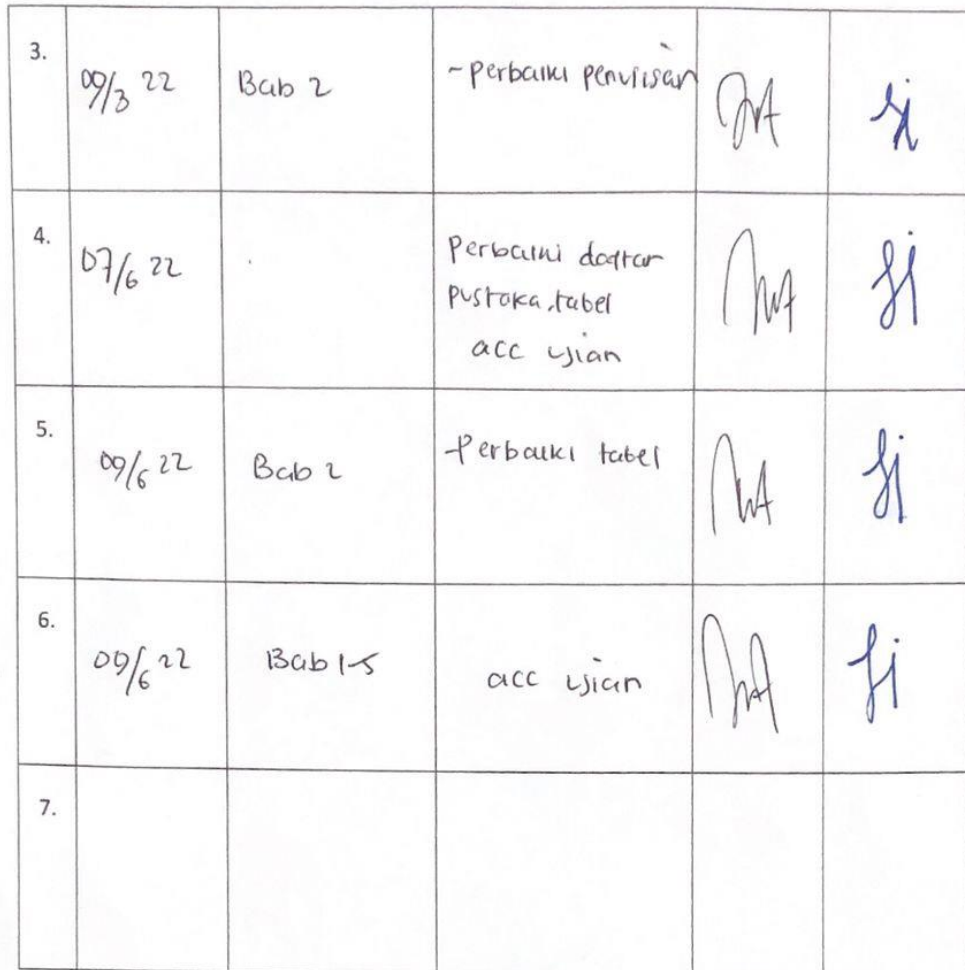 3.
09/3 22
Bab 2
- perbaiki penulisan
4.
07/6 22
Perbaiki daftar
pustaka, tabel
acc ujian
5.
09/6 22
Bab 2
- Perbaiki tabel
6.
09/6 22
Bab 1-5
acc ujian
7.